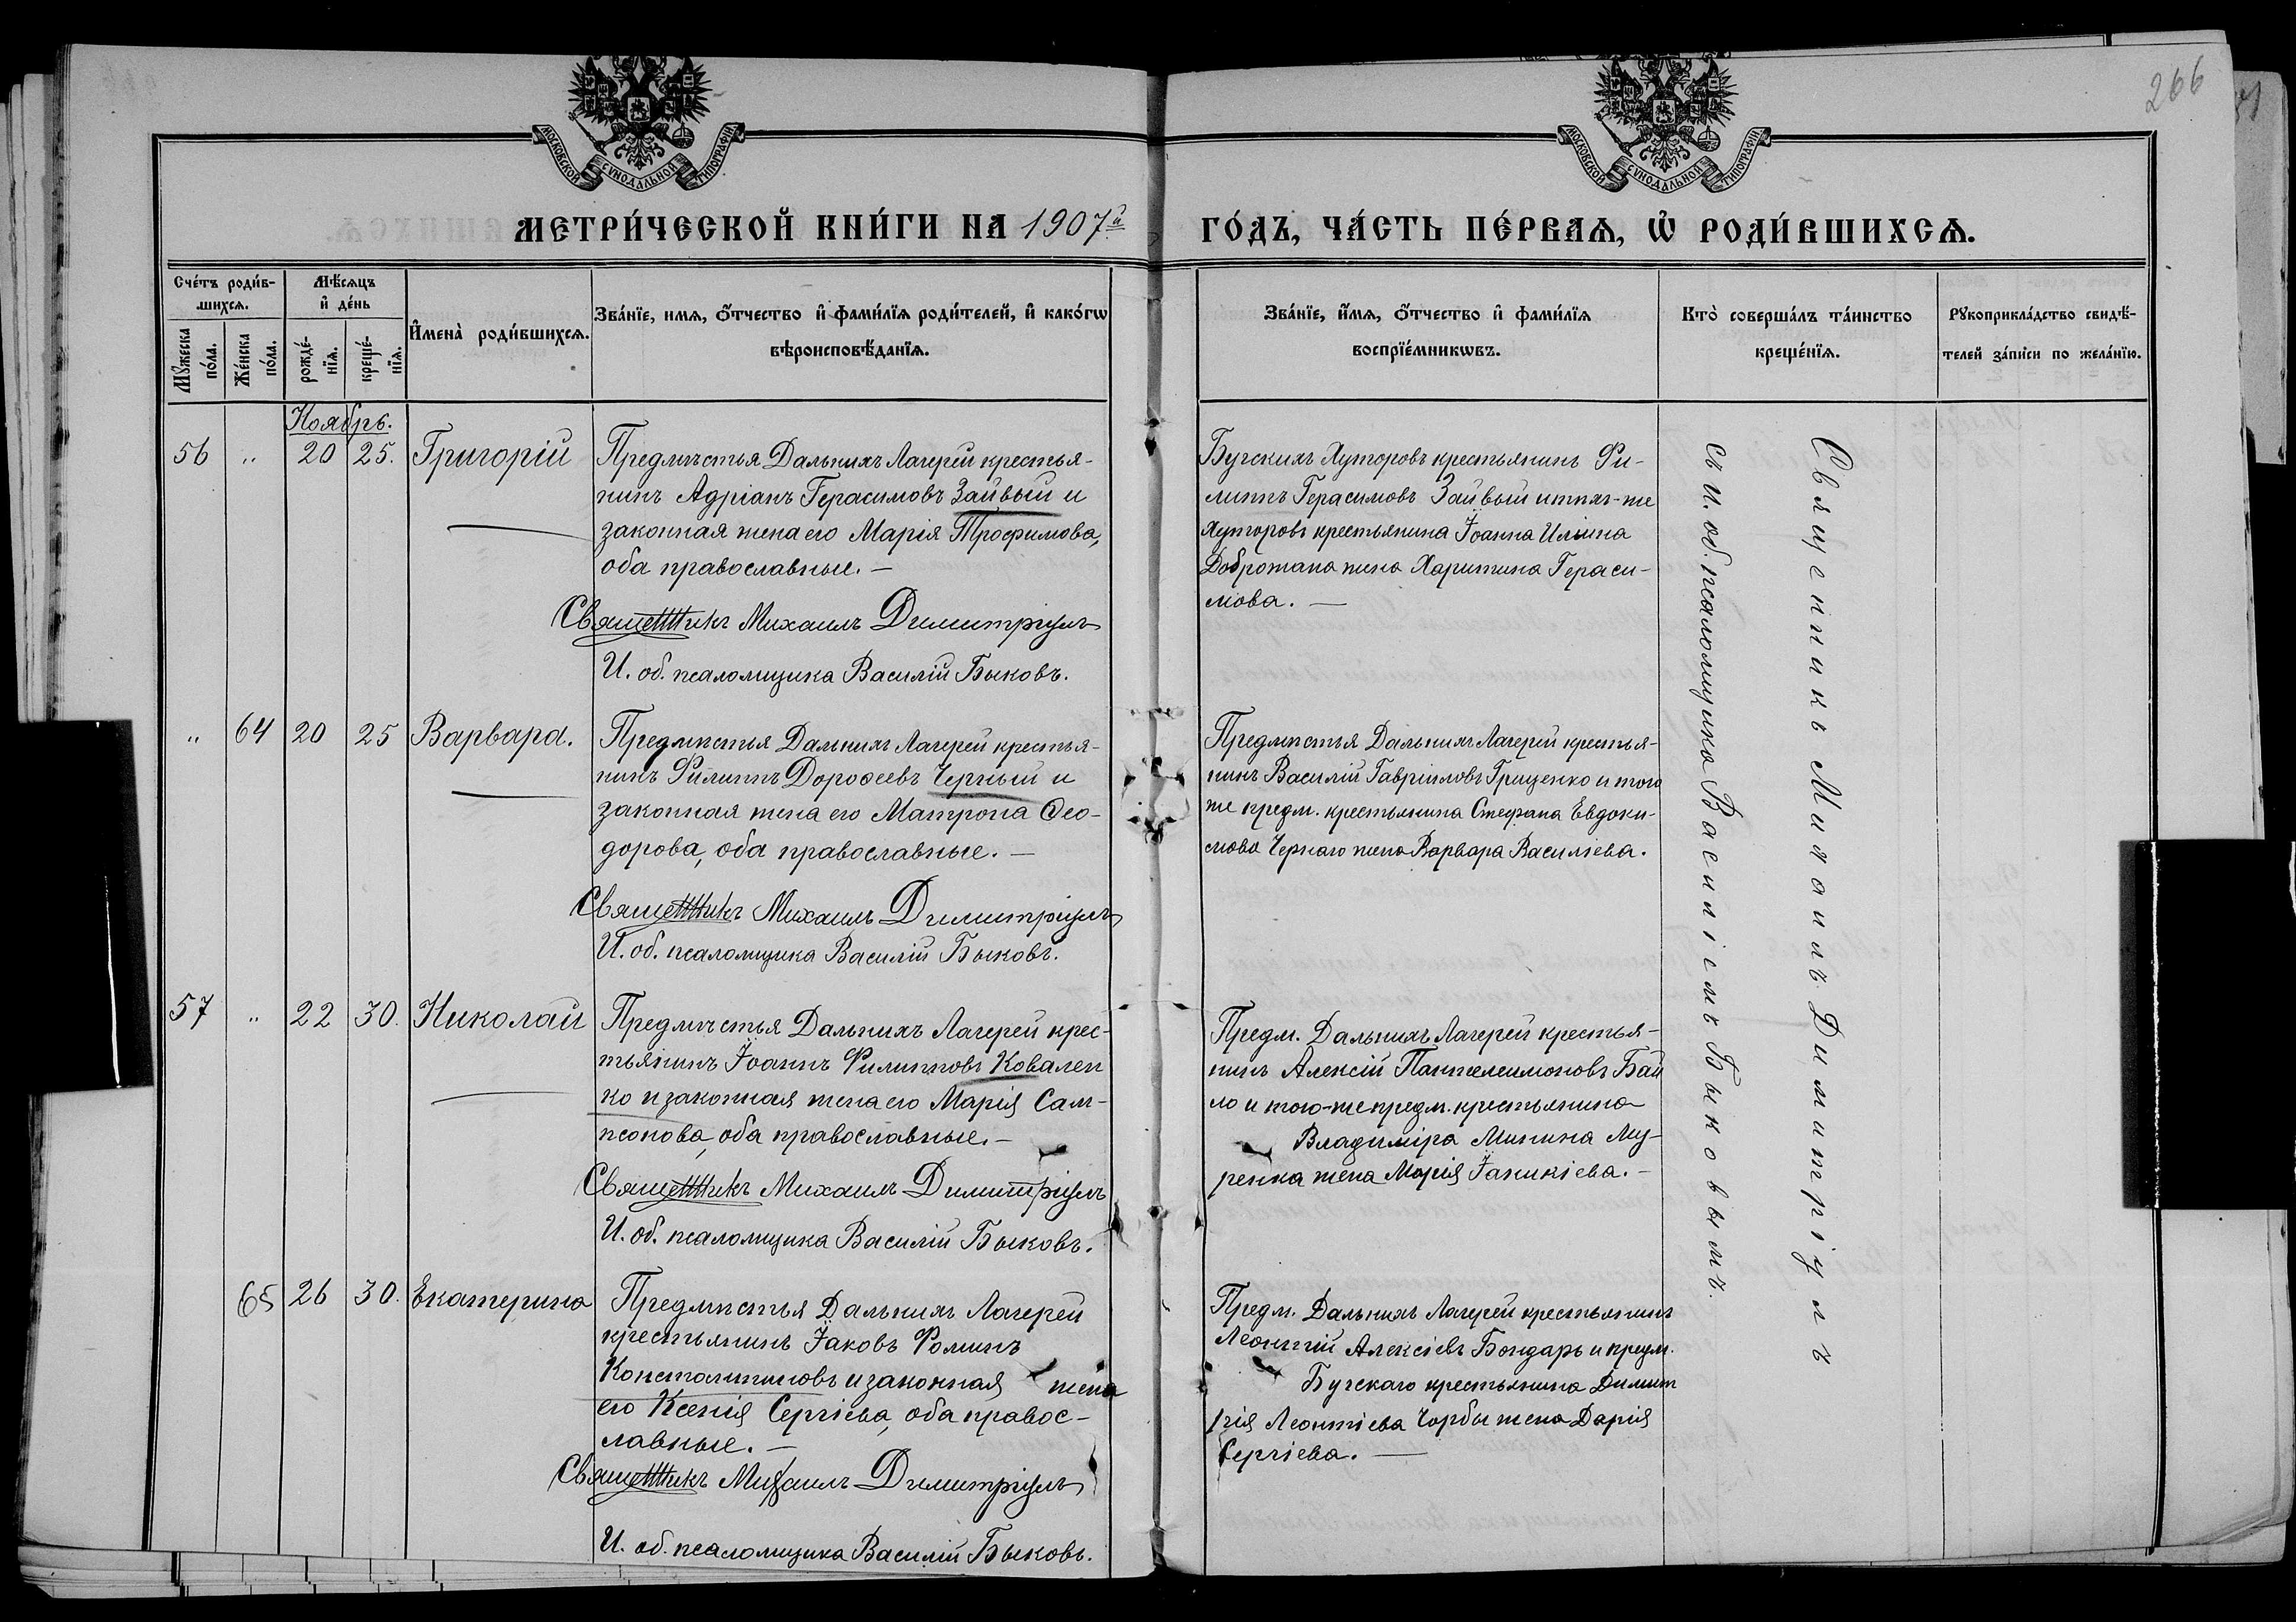 266
МОСКОВСКОЙ СѴНОДАЛЬНОЙ ТИПОГРАФІИ
МОСКОВСКОЙ СѴНОДАЛЬНОЙ ТИПОГРАФІИ
МЕТРИ́ЧЕСКОЙ КНИ́ГИ НА 1907й
ГО́ДЪ, ЧА́СТЬ ПЕ́РВАѦ, Ѡ РОДИ́ВШИХСѦ.
Сче́тъ роди́в-
шихсѧ.
Мꙋжеска по́ла.
Же́нска по́ла.
Мѣ́сѧцъ
и҆ де́нь
рожде́-
нїѧ.
креще́-
нїѧ.
И҆мена̀ роди́вшихсѧ.
Зва́нїе, имѧ, ѻ҆́тчество и҆ фами́лїѧ роди́телей, и҆ како́гѡ
вѣроисповѣ́данїѧ.
Зва́нїе, и҆́мѧ, ѻ҆́тчество и҆ фами́лїѧ
воспрїе́мникѡвъ.
Кто̀ соверша́лъ та́инство
креще́нїѧ.
Рꙋкоприкла́дство свидѣ́-
телей за́писи по жела́нїю.
Ноябрь.
56 " 20 25. Григорій
Предмѣстья Дальнихъ Лагерей крестья-
нинъ Адріанъ Герасимовъ Зайвый и
законная жена его Марія Трофимова,
оба православные. —
Священникъ Михаилъ Димитріулъ
И. об. псаломщика Василій Быковъ.
Бугскихъ Хуторовъ крестьянинъ Фи-
липпъ Герасимовъ Зайвый и тѣхъ-же
Хуторовъ крестьянина Іоанна Ильина
Доброжана жена Харитина Гераси-
мова. —
" 64 20 25 Варвара.
Предмѣстья Дальнихъ Лагерей крестья-
нинъ Филиппъ Дорофеевъ Черный и
законная жена его Матрона Ѳео-
дорова, оба православные. —
Священникъ Михаилъ Димитріулъ
И. об. псаломщика Василій Быковъ.
Предмѣстья Дальнихъ Лагерей крестья-
нинъ Василій Гавріиловъ Гриценко и того
же предм. крестьянина Стефана Евдоки-
мова Чернаго жена Варвара Васильева.
57 " 22 30. Николай
Предмѣстья Дальнихъ Лагерей крес-
тьянинъ Іоаннъ Филипповъ Ковален
ко и законная жена его Марія Сам-
псонова, оба православные. —
Священникъ Михаилъ Димитріулъ
И. об. псаломщика Василій Быковъ.
Предм. Дальнихъ Лагерей крестья-
нинъ Алексій Пантелеимоновъ Бай
ло и того-же предм. крестьянина
Владиміра Минина Му-
ренка жена Марія Іаникіева. —
65 26 30. Екатерина
Предмѣстья Дальнихъ Лагерей
крестьянинъ Іаковъ Фоминъ
Константиновъ и законная жена
его Ксенія Сергіева, оба правос-
лавные. —
Священникъ Михаилъ Димитріулъ
И. об. псаломщика Василій Быковъ.
Предм. Дальнихъ Лагерей крестьянинъ
Леонтій Алексіевъ Бондарь и предм.
Бугскаго крестьянина Димит
рія Леонтіева Чорбы жена Дарія
Сергіева. —
Священникъ Михаилъ Димитріулъ
съ и. об. псаломщика Василіемъ Быковымъ.